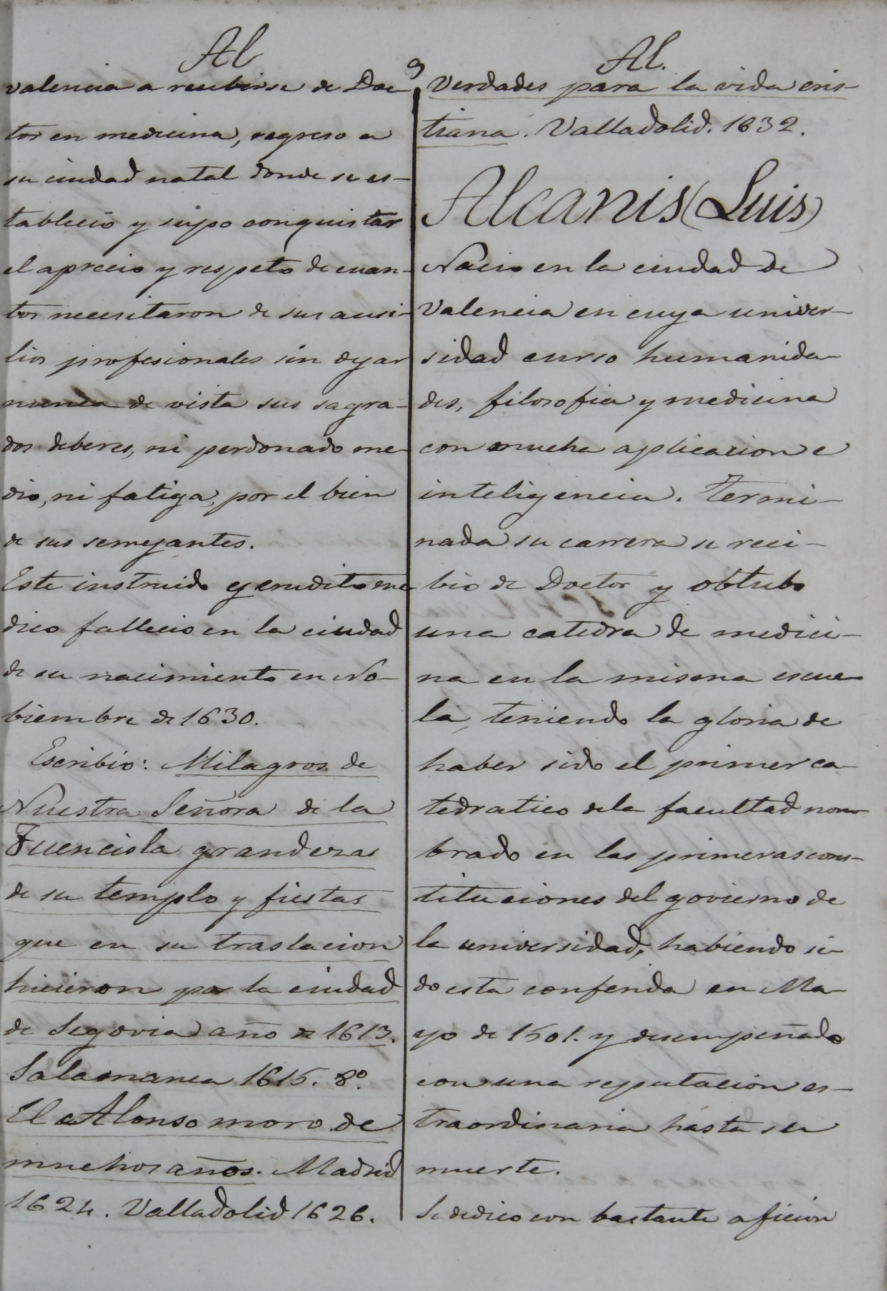 Al
Valencia a recibirse de Doc-
tor en medicina, regreso a
su ciudad natal donde se es-
tablecio y supo conquistar
el aprecio y respeto de cuan-
tos necesitaron de sus ausi-
lios profesionales sin dejar
nunca de vista sus sagra-
dos deberes, ni perdonado me-
dio, ni fatiga, por el bien
de sus semejantes.
Este instruido y erudito me-
dico fallecio en la ciudad
de su nacimiento en No-
biembre de 1630.
Escribio: Milagros de
Nuestra Señora de la
Fuencisla grandezas
de su templo y fiestas
que en su traslacion
hicieron por la ciudad
de Segovia año de 1613.
Salamanca 1615. 8º.
El Alonso moro de
muchos años. Madrid
1624. Valladolid 1626.
9
Al.
Verdades para la vida cris-
tiana. Valladolid. 1632.
Alcanis (Luis)
Nacio en la ciudad de
Valencia en cuya univer-
sidad curso humanida-
des, filosofia y medicina
con mucha aplicacion e
inteligencia. Termi-
nada su carrera se reci-
bio de Doctor y obtubo
una catedra de medici-
na en la misma escue-
la, teniendo la gloria de
haber sido el primer ca-
tedratico de la facultad nom-
brado en las primeras cons-
tituciones del govierno de
la universidad, habiendo si-
do esta conferida en Ma-
yo de 1501. y desempeñado
con una reputacion es-
traordinaria hasta su
muerte.
Se dedico con bastante aficion